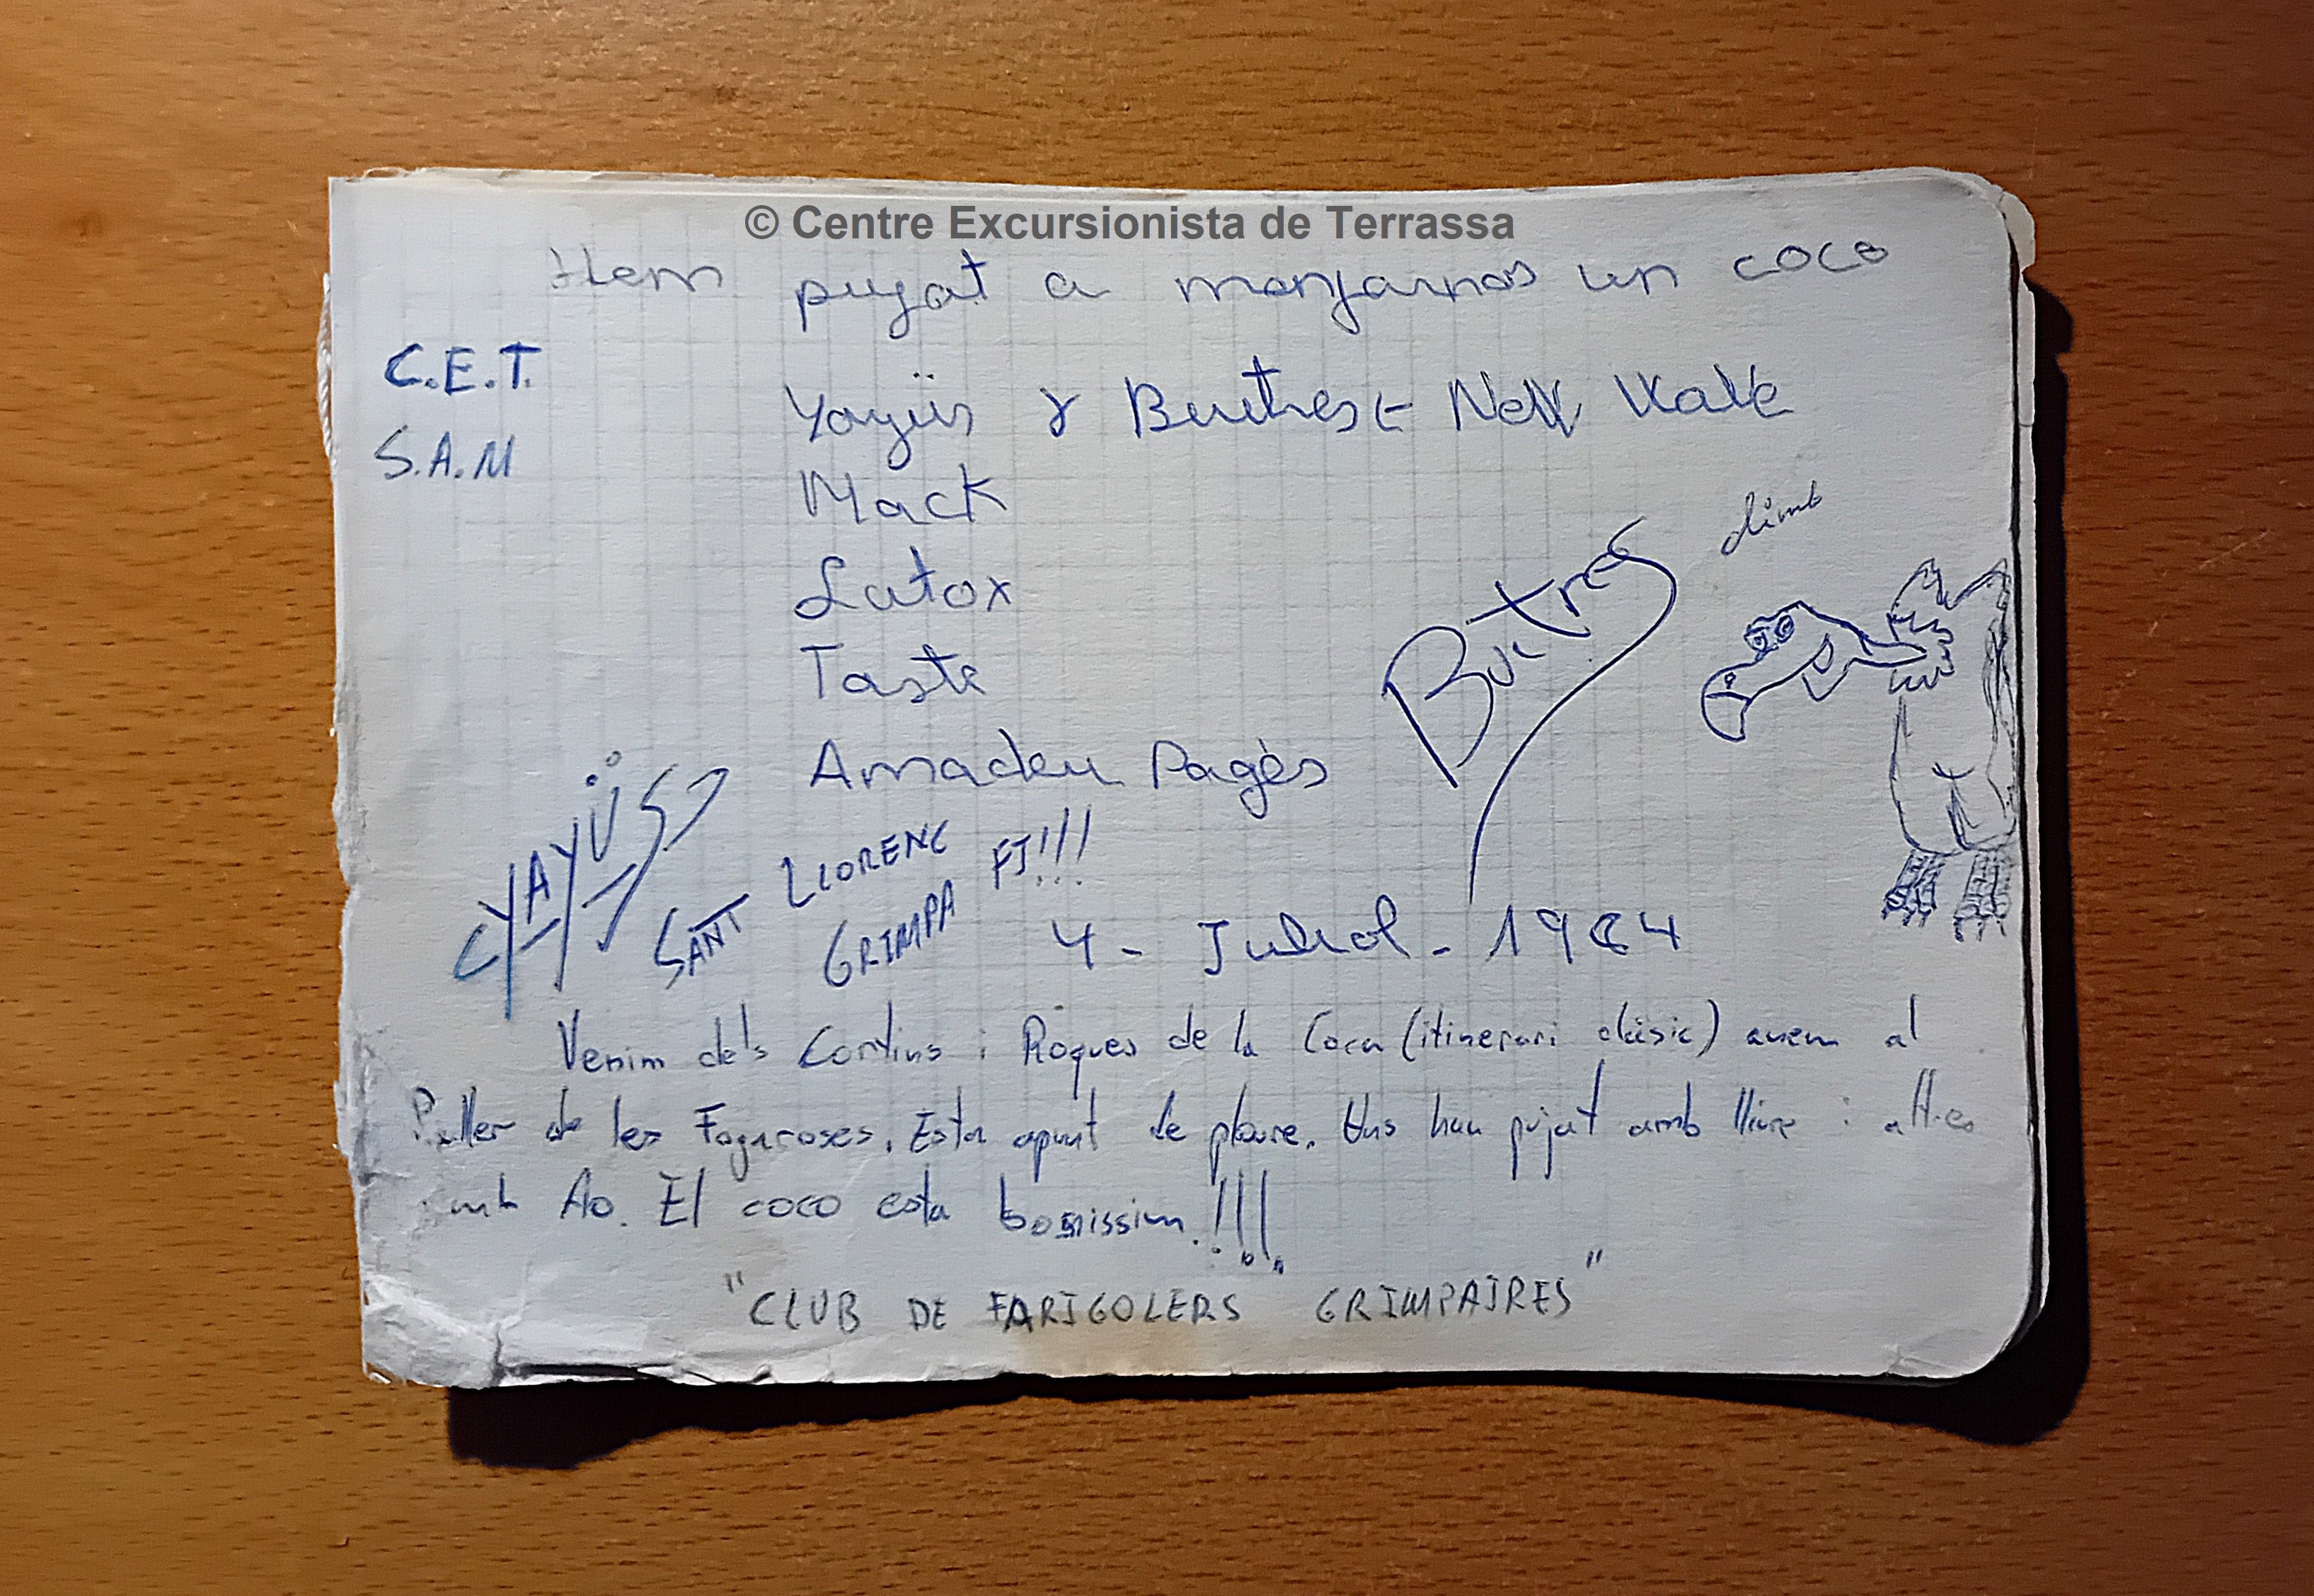 © Centre Excursionista de Terrassa
Hem pujat a menjarnos un coco
C.E.T.
S.A.M
Yayüs y Buitres - New Wave
Mack
Latox
Taste
Amadeu Pagès
Buitres
climb
YAYÜS
SANT LLORENÇ
GRIMPA FJ!!!
4 - Juliol - 1984
Venim dels Cortins i Roques de la Coca (itinerari clàsic) anem al
Paller de les Fogaroses. Esta apunt de ploure. Uns han pujat amb lliure i altres
amb Ao. El coco esta bonissim.!!!
"CLUB DE FARIGOLERS GRIMPAIRES"